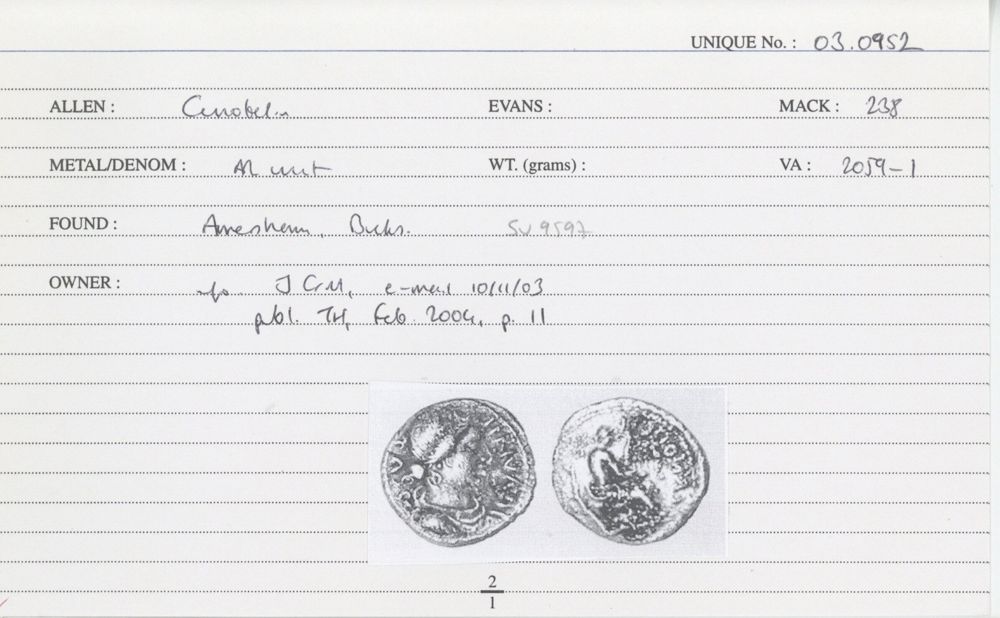 UNIQUE No. : 03.0952
ALLEN : Cunobelin EVANS : MACK : 238
METAL/DENOM : AR unit WT. (grams) : VA : 2059-1
FOUND : Amersham, Bucks. SU 9597
OWNER : info. J CM, e-mail 10/11/03
publ. TH, Feb. 2004, p. 11
2
1